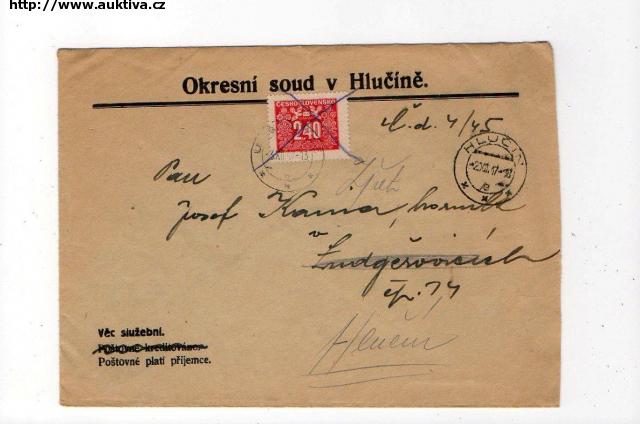 http://www.auktiva.cz
Okresní soud v Hlučíně.
ČESKOSLOVENSKO
240
Č. d. 4/45
HLUČÍN
Pan
Josef Kama, horník
v
Ludgeřovicích
čp. 74
Hlučín
Věc služební.
Poštovné kreditováno.
Poštovné platí příjemce.